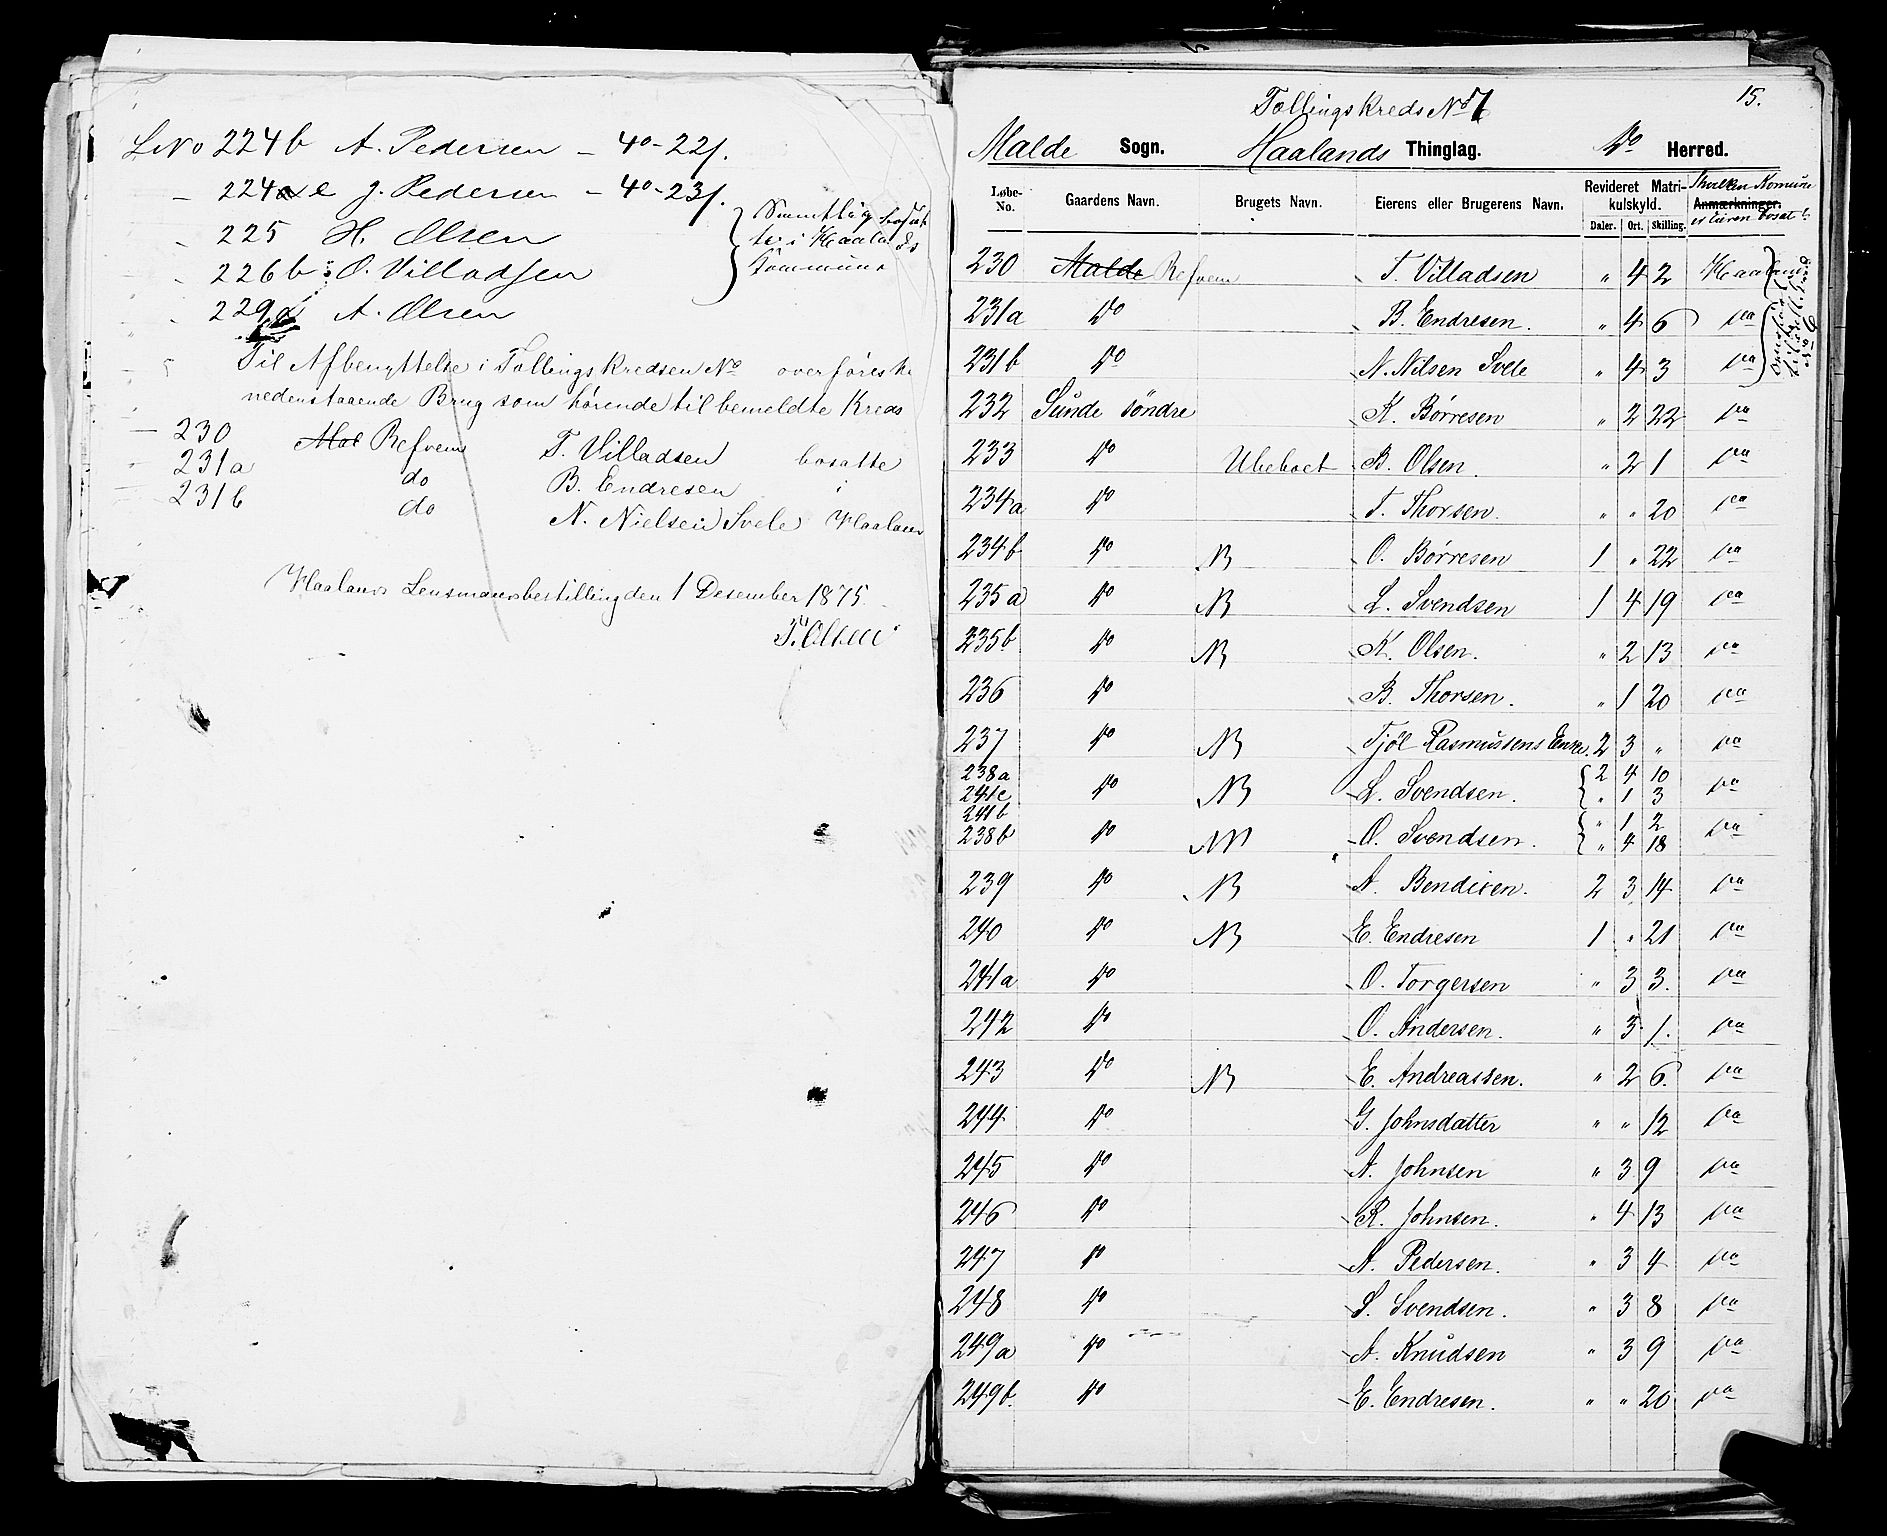 LNo 224b A. Pedersen – 40-22/.
– 224 e J. Pedersen – 40-23/.
225 H. Olsen
226b O. Villadsen
229 A. Olsen
Samtlig bosat
te i Haalands
Kommune
Til Afbenyttelse i Tællingskredsen No overføres
nedenstaaende Brug som hørende til bemeldte Kreds
230 Mal Refvem T. Villadsen bosatte
231a do B. Endresen i
231b do N. Nielsen Svele Haaland
Haalands Lensmandsbestilling den 1 Desember 1875.
T. Olsen
15.
Tællingskreds No 7
Malde Sogn. Haalands Thinglag. Do Herred.
Løbe-No. Gaardens Navn. Brugets Navn. Eierens eller Brugerens Navn. Revideret Matrikulskyld. Anmærkninger.
Daler. Ort. Skilling. er Eieren bosat?
230 Malde Refvem T. Villadsen " 4 2 Haaland
231a Do B. Endresen. " 4 6 Do
231b Do N. Nilsen Svele " 4 3 Do
232 Sunde söndre K. Børresen " 2 22 Do
233 Do Ubeboet B. Olsen. " 2 1 Do
234a Do T. Thorsen. " " 20 Do
234b Do NB O. Børresen 1 " 22 Do
235a Do NB L. Svendsen 1 4 19 Do
235b Do NB K. Olsen. " 2 13 Do
236 Do B. Thorsen. " 1 20 Do
237 Do NB Tjöl Rasmussens Enke. 2 3 " Do
238a 2 4 10
241c Do NB L. Svendsen. " 1 3 Do
241b " 1 2
238b Do NB O. Svendsen. " 4 18 Do
239 Do NB A. Bendixen. 2 3 14 Do
240 Do NB E. Endresen 1 " 21 Do
241a Do O. Torgersen " 3 3. Do
242 Do O. Andersen. " 3 1. Do
243 Do NB E. Andreassen. " 2 6. Do
244 Do G. Johnsdatter " " 12 Do
245 Do A. Johnsen " 3 9 Do
246 Do R. Johnsen. " 4 13 Do
247 Do A. Pedersen. " 3 4 Do
248 Do S. Svendsen. " 3 8 Do
249a Do A. Knudsen " 3 9 Do
249b. Do E. Endresen. " " 20 Do